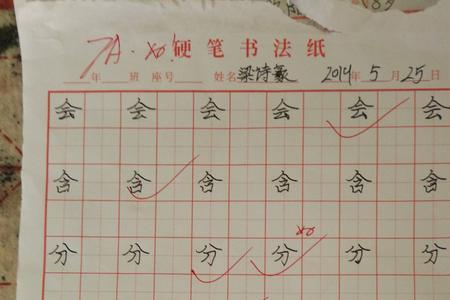 硬笔书法纸
年 班 座号 姓名梁诗篆 2014年5月25日
会 会 会 会 会 会
含 含 含 含 含 含
分 分 分 分 分 分